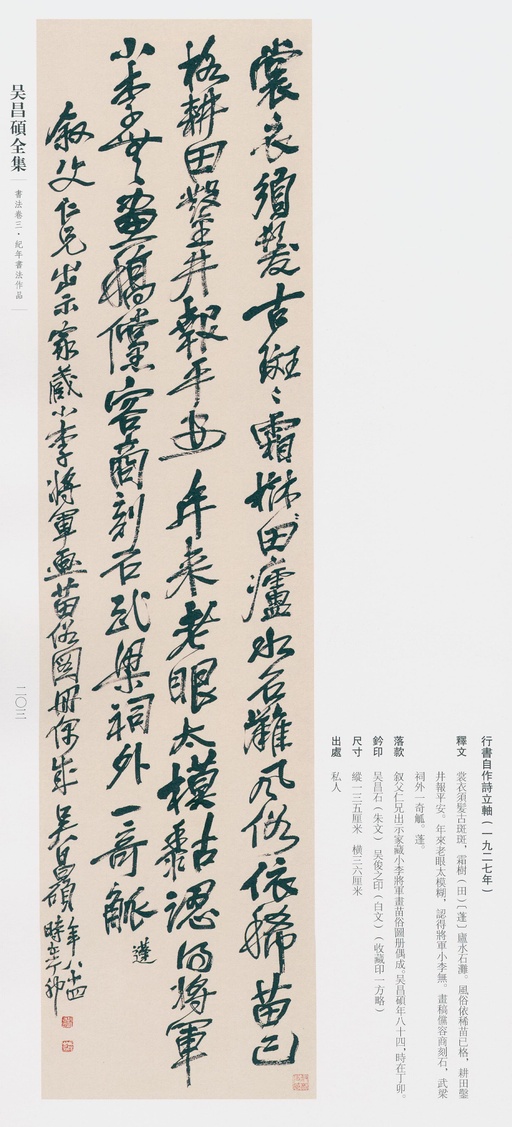 行書自作詩立軸（一九二七年）
釋文 裳衣須髮古斑斑，霜樹（田）〔蓬〕廬水石灘。風俗依稀苗已格，耕田鑿
井報平安。年來老眼太模糊，認得將軍小李無。畫稿儻容商刻石，武梁
祠外一奇觚。蓬。
落款 叙父仁兄出示家藏小李將軍畫苗俗圖册偶成，吴昌碩年八十四，時在丁卯。
鈐印 吴昌石（朱文） 吴俊之印（白文）（收藏印一方略）
尺寸 縱一三五厘米 横三六厘米
出處 私人
裳衣須髮古斑〻霜樹田廬水石灘風俗依稀苗已
格耕田鑿井報平安年來老眼太模黏認得將軍
小李無畫稿儻容商刻石武梁祠外一奇觚 蓬
叙父仁兄出示家藏小李將軍畫苗俗圖册偶成 吴昌碩年八十四
時在丁卯
吴昌碩全集
書法卷三·紀年書法作品
二〇三